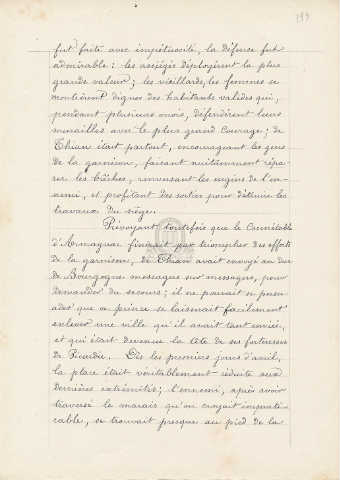 199
fut faite avec impétuosité, la défense fut
admirable : les assiégés déployèrent la plus
grande valeur ; les vieillards, les femmes se
montrèrent dignes des habitants valides qui,
pendant plusieurs mois, défendirent leurs
murailles avec le plus grand courage ; de
Thian était partout, encourageant les gens
de la garnison, faisant nuitamment répa-
rer les brèches, renversant les engins de l'en-
nemi, et profitant des sorties pour détruire les
travaux du siège.
Prévoyant toutefois que le Connétable
d'Armagnac finirait par triompher des efforts
de la garnison, de Thian avait envoyé au duc
de Bourgogne messages sur messages, pour
demander du secours ; il ne pouvait se persu-
ader que ce prince se laisserait facilement
enlever une ville qu'il avait tant enviée,
et qui était devenue la tête de ses forteresses
de Picardie. Dès les premiers jours d'avril,
la place était véritablement réduite aux
dernières extrémités ; l'ennemi, après avoir
traversé le marais qu'on croyait imprati-
cable, se trouvait presque au pied de la